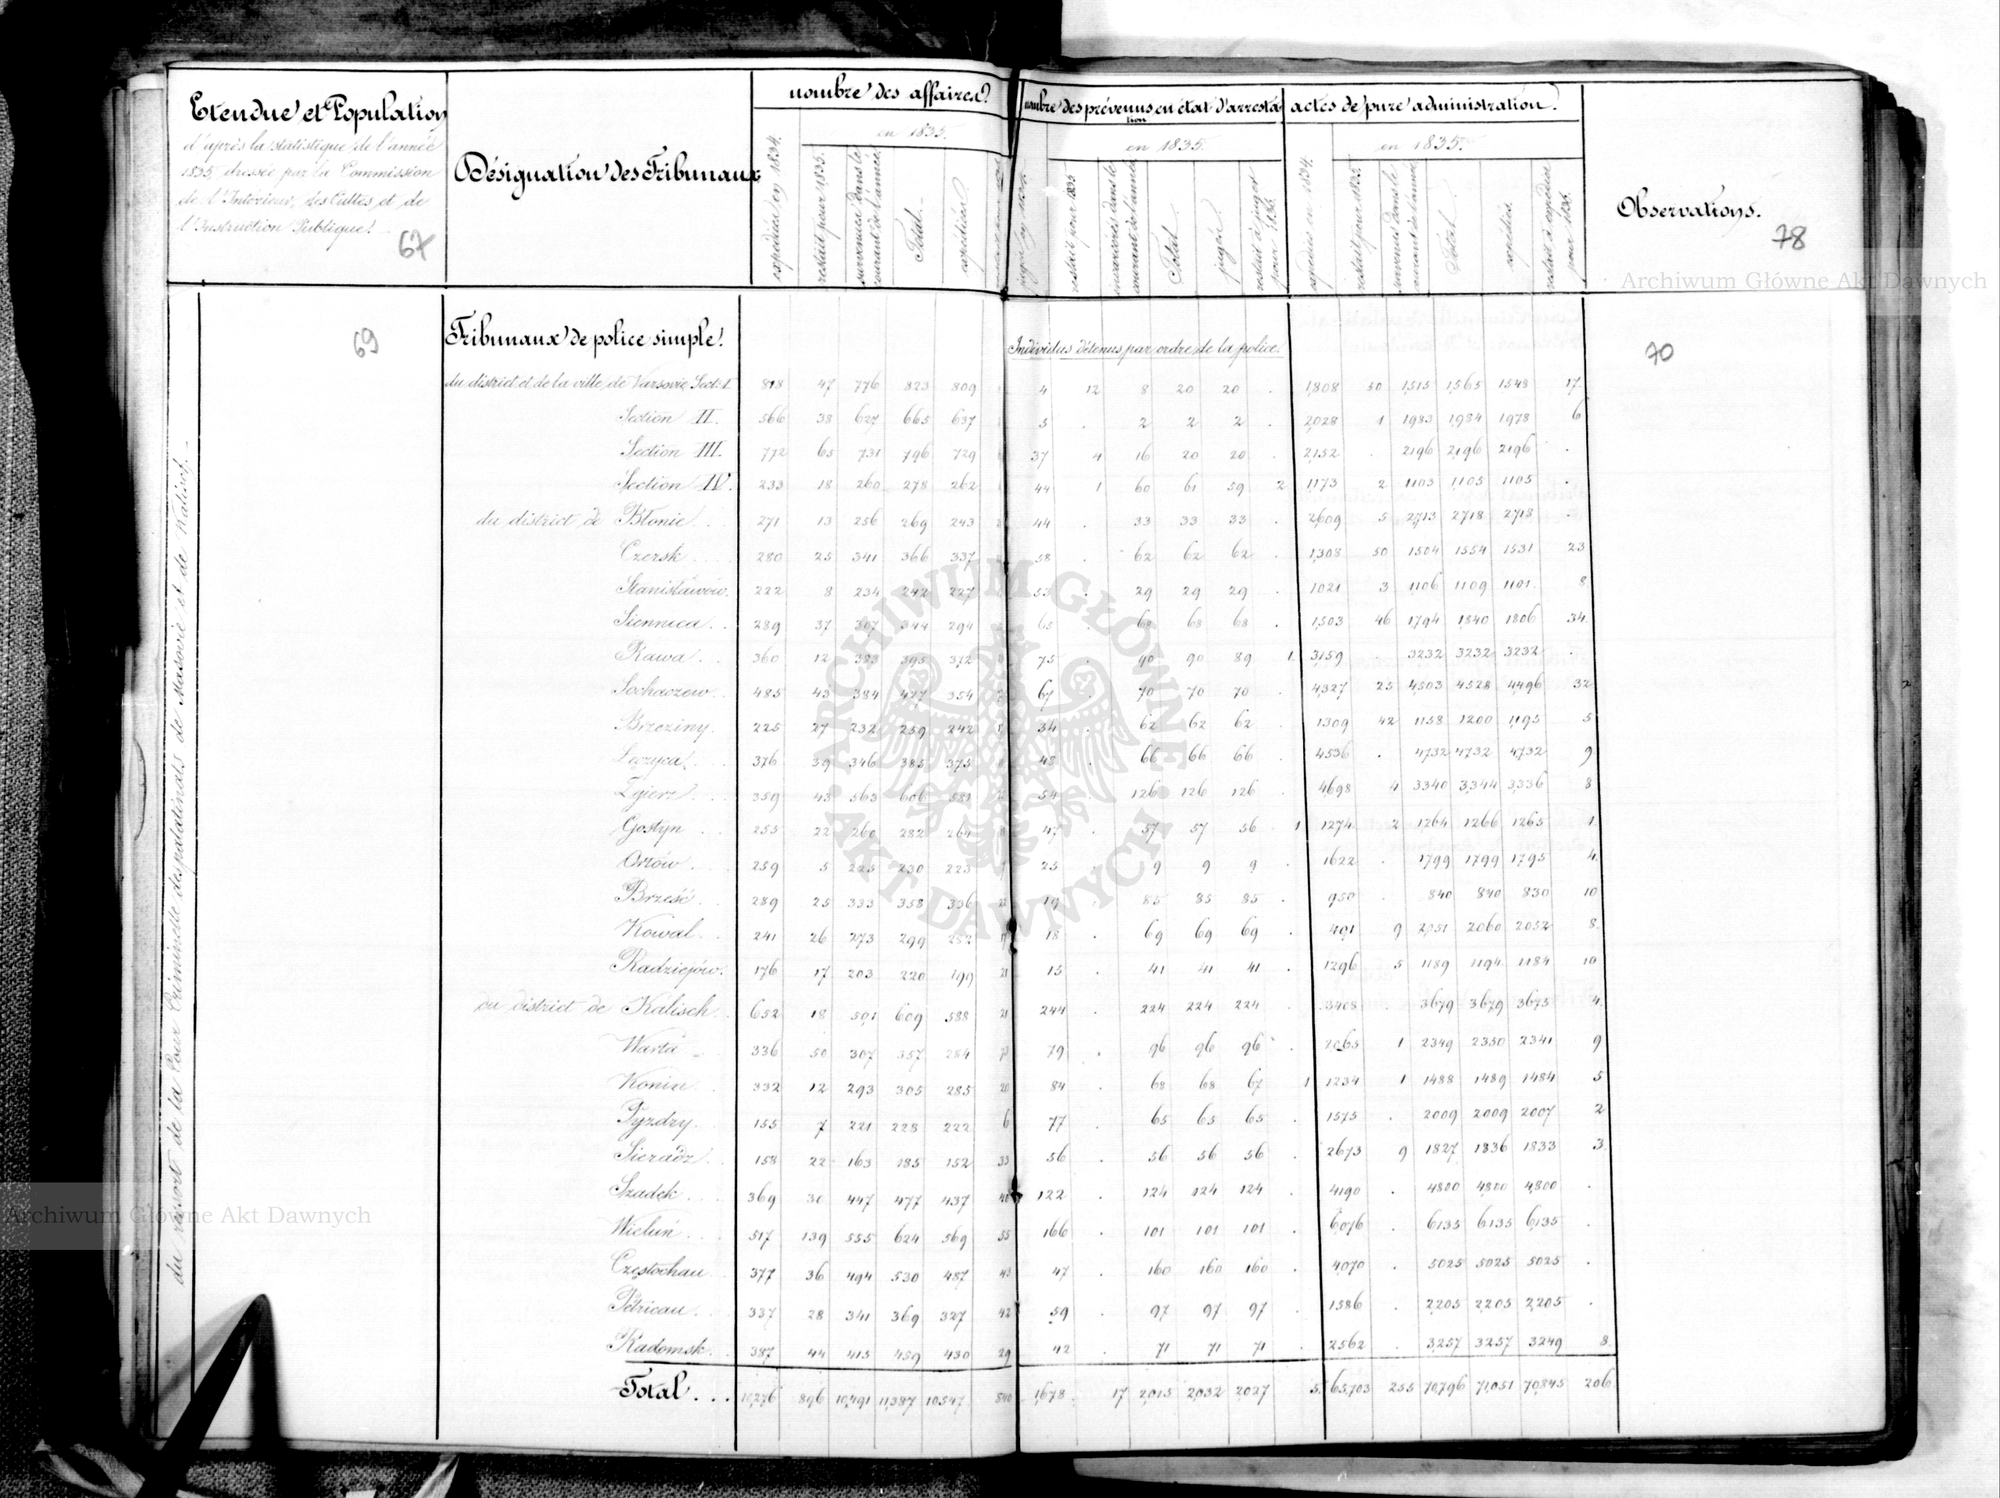 Etendue et Population
d'après la statistique de l'année
1835 dressée par la Commission
de l'Intérieur, des Cultes et de
l'Instruction Publique.
67
Désignation des Tribunaux
nombre des affaires
expédiées en 1834.
en 1835.
restait pour 1835.
survenues dans le courant de l'année
Total.
expédiées
nombre des prévenus en état d'arrestation
en 1835.
restait pour 1835
incarcérés dans le courant de l'année
Total.
jugés
restait à juger pour 1836
actes de pure administration.
expédiés en 1834.
en 1835.
restait pour 1835
survenus dans le courant de l'année
Total
expédiés
restait à expédier pour 1836.
Observations.
78
Archiwum Główne Akt Dawnych
du ressort de la Cour Criminelle des palatinats de Masovie et de Kalisch.
69
70
Tribunaux de police simple.
Individus détenus par ordre de la police.
du district et de la ville de Varsovie Sect. I. 818 47 776 823 809 4 12 8 20 20 . 1,808 50 1,515 1,565 1548 17
Section II. 566 38 627 665 637 5 . 2 2 2 . 2,028 1 1983 1,984 1978 6
Section III. 772 65 731 796 729 37 4 16 20 20 . 2,152 . 2196 2,196 2196 .
Section IV. 233 18 260 278 262 44 1 60 61 59 2 1173 2 1103 1,105 1105 .
du district de Błonie 271 13 256 269 243 44 . 33 33 33 . 2,609 5 2,713 2718 2718 .
Czersk 280 25 341 366 337 58 . 62 62 62 . 1,308 50 1504 1554 1531 23
Stanisławów 222 8 234 242 227 53 . 29 29 29 . 1021 3 1106 1109 1101 8
Siennica 289 37 307 344 294 65 . 68 68 68 . 1,503 46 1794 1,840 1806 34
Rawa 360 12 383 395 372 75 . 90 90 89 1 3159 . 3232 3232 3232 .
Sochaczew 485 43 384 427 354 67 . 70 70 70 . 4,327 25 4,503 4528 4,496 32
Brzeziny 225 27 232 259 242 34 . 62 62 62 . 1309 42 1158 1200 1,195 5
Leczyca 376 39 346 385 375 48 . 66 66 66 . 4536 . 4732 4732 4732 9
Zgierz 359 43 563 606 581 54 . 126 126 126 . 4,698 4 3340 3,344 3,336 8
Gostyn 255 22 260 282 264 47 . 57 57 56 1 1274 2 1264 1266 1265 1
Orłów 259 5 225 230 223 25 . 9 9 9 . 1622 . 1799 1799 1795 4
Brześć 289 25 333 358 336 22 19 . 85 85 85 . 950 . 840 840 830 10
Kowal 241 26 273 299 282 17 18 . 69 69 69 . 401 9 2,051 2060 2052 8
Radziejów 176 17 203 220 199 21 15 . 41 41 41 . 1296 5 1189 1194 1184 10
du district de Kalisch 652 18 591 609 588 21 244 . 224 224 224 . 3408 . 3679 3679 3675 4
Warta 336 50 307 357 284 73 79 . 96 96 96 . 2065 1 2349 2350 2341 9
Konin 332 12 293 305 285 20 84 . 68 68 67 1 1234 1 1488 1489 1484 5
Pyzdry 155 7 221 228 222 6 77 . 65 65 65 . 1575 . 2009 2009 2007 2
Sieradz 158 22 163 185 152 33 56 . 56 56 56 . 2673 9 1827 1836 1833 3
Szadek 369 30 447 477 437 40 122 . 124 124 124 . 4190 . 4800 4,800 4,800 .
Wieluń 517 139 555 624 569 55 166 . 101 101 101 . 6,076 . 6135 6135 6,135 .
Częstochau 377 36 494 530 487 43 47 . 160 160 160 . 4,070 . 5025 5025 5025 .
Pétricau 337 28 341 369 327 42 59 . 97 97 97 . 1586 . 2,205 2,205 2,205 .
Radomsk 387 44 415 459 430 29 42 . 71 71 71 . 2562 . 3257 3257 3249 8
Total . . . 10,276 896 10,491 11,387 10547 840 1,678 17 2,015 2,032 2,027 5 65,703 255 70,796 71,051 70,845 206
ARCHIWUM GŁÓWNE AKT DAWNYCH
Archiwum Główne Akt Dawnych